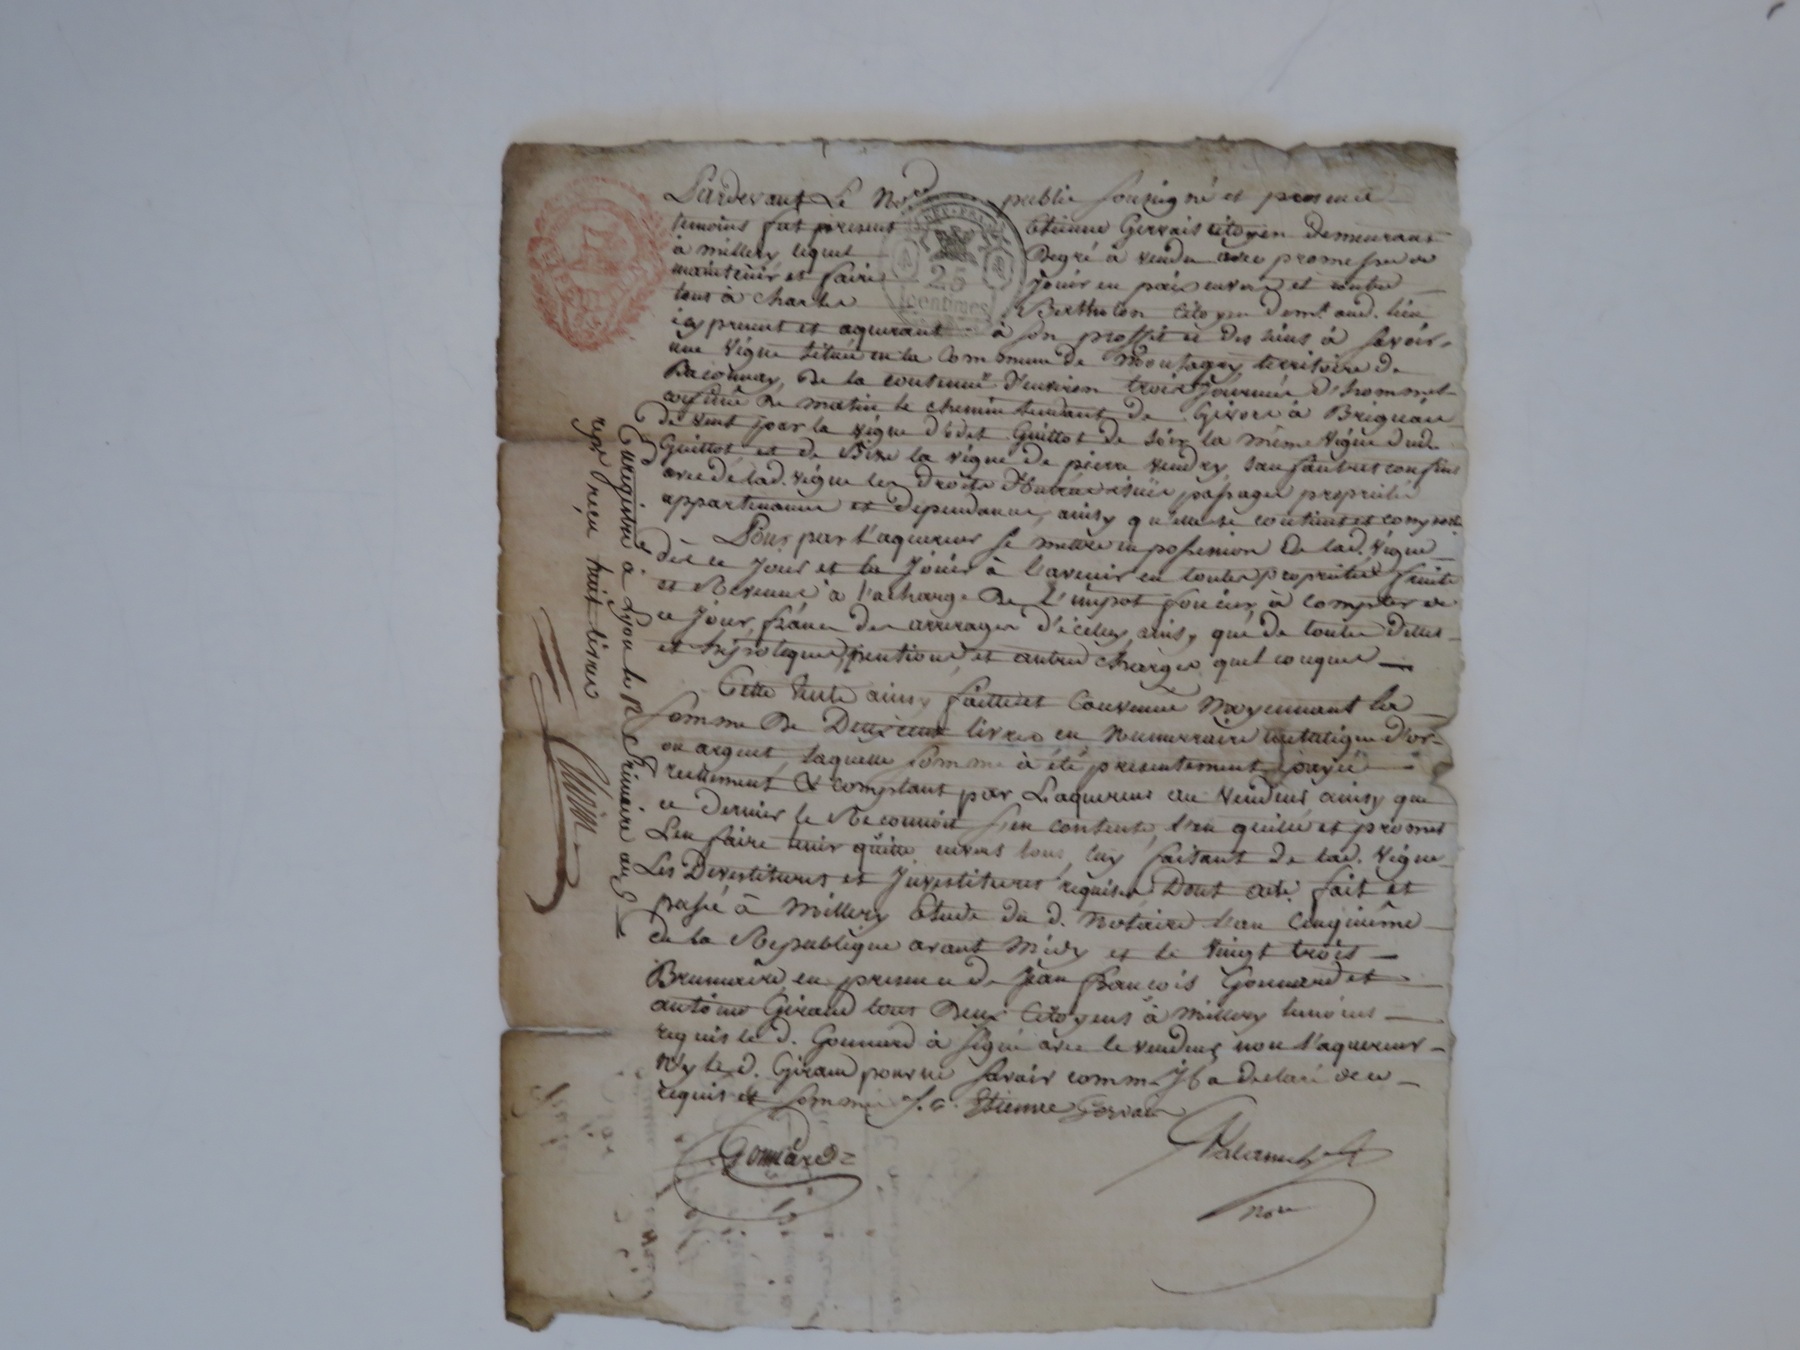 Pardevant Le No.re public sousigné et presence
temoins fut present Etienne Gervais citoyen demeurant
à millery lequel Degré à vendu avec promesse de
maintenir et faire Jouir en paix envers et contre
tous à Charles Berthelon Citoyen demt. aud. lieu
icy present et aquerant à son proffit et des siens à savoir
une vigne située en la Commune de Montagny territoire de
Baconnay, De la contenue d'environ trois Journée d'hommes
confine De matin le chemin tendant de Givors à Brignais
De vent par la vigne dudit Guillot de soir la même vigne dud.
Guillot, et de Bize la vigne de pierre vendry, sauf autres confins
avec de lad. vigne les droits d'entrée issüe passages proprietés
appartenances et dependances, ainsy qu'elle se contient et comporte
Pour par l'aquereur se mettre en possession de lad. vigne
dès ce Jour et la Jouir à l'avenir en toutes proprietés fruits
et Revenus à la charge De L'impot foncier, à compter de
ce Jour, franc des arrerages d'icelluy, ainsy que de toutes Dettes
et hipoteques, pentions, et autres charges quelconques
Cette vente ainsy faitte et Convenüe Moyennant la
somme De Deux cent livres en Numerraire metalique d'or
ou argent, laquelle somme à été presentement payée
reellement & comptant par L'aquereur au vendeur, ainsy que
ce dernier le Reconnoit s'en contente, l'en quitte et promet
L'en faire tenir quitte envers tous, luy faisant de lad. vigne
Les Devestitures et Investitures requises Dont acte fait et
passé à Millery Etude du d. Notaire l'an Cinquième
de la Republique avant Midy et le vingt trois
Brumaire, en presence de Jean François Gonnard et
antoine Giraud tous Deux Citoyens à Millery temoins
requis le d. Gonnard à signé avec le vendeur non l'aquereur
n'y le d. Giraud pour ne savoir comme Il a declaré de ce
requis et sommé Etienne Gervais
Gonnard
nore
Enregistré à Lyon le Frimaire an 5
reçu huit livres
25
centimes